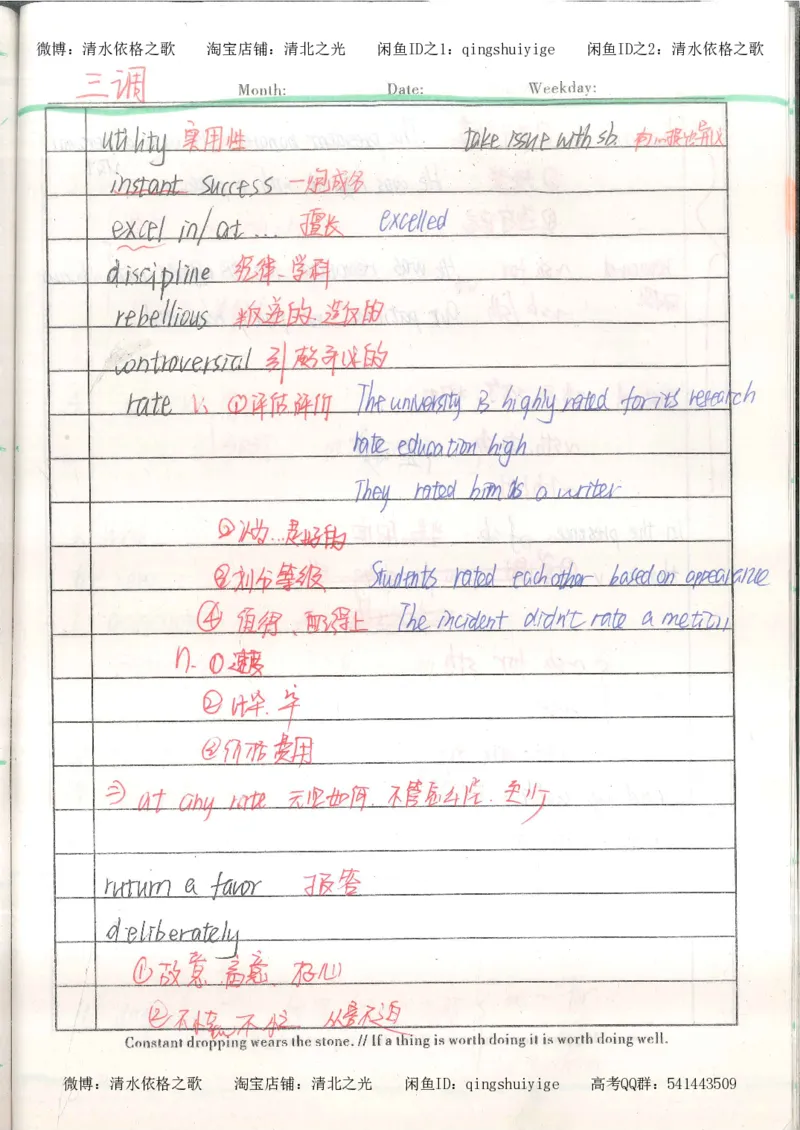 微博：清水依格之歌 淘宝店铺：清北之光 闲鱼ID之1：qingshuiyige 闲鱼ID之2：清水依格之歌
三调 Month: Date: Weekday:
utility 实用性 take issue with sb. 提出异议
instant success 一炮成名
excel in/at ... 擅长 excelled
discipline 纪律、学科
rebellious 叛逆的、造反的
controversial 引起争议的
rate v. ①评估评价 The university is highly rated for its research
rate education high
They rated him as a writer
②认为...是好的
③划分等级 Students rated each other based on
④ 值得、配得上 The incident didn't rate a
n. ①速度
②比率. 率
③价格费用
⇒ at any rate 无论如何. 不管怎么样. 至少
ruturn a favor 报答
deliberately
①故意、蓄意、存心
②不慌不忙 从容不迫
Constant dropping wears the stone. // If a thing is worth doing it is worth doing well.
微博：清水依格之歌 淘宝店铺：清北之光 闲鱼ID：qingshuiyige 高考QQ群：541443509